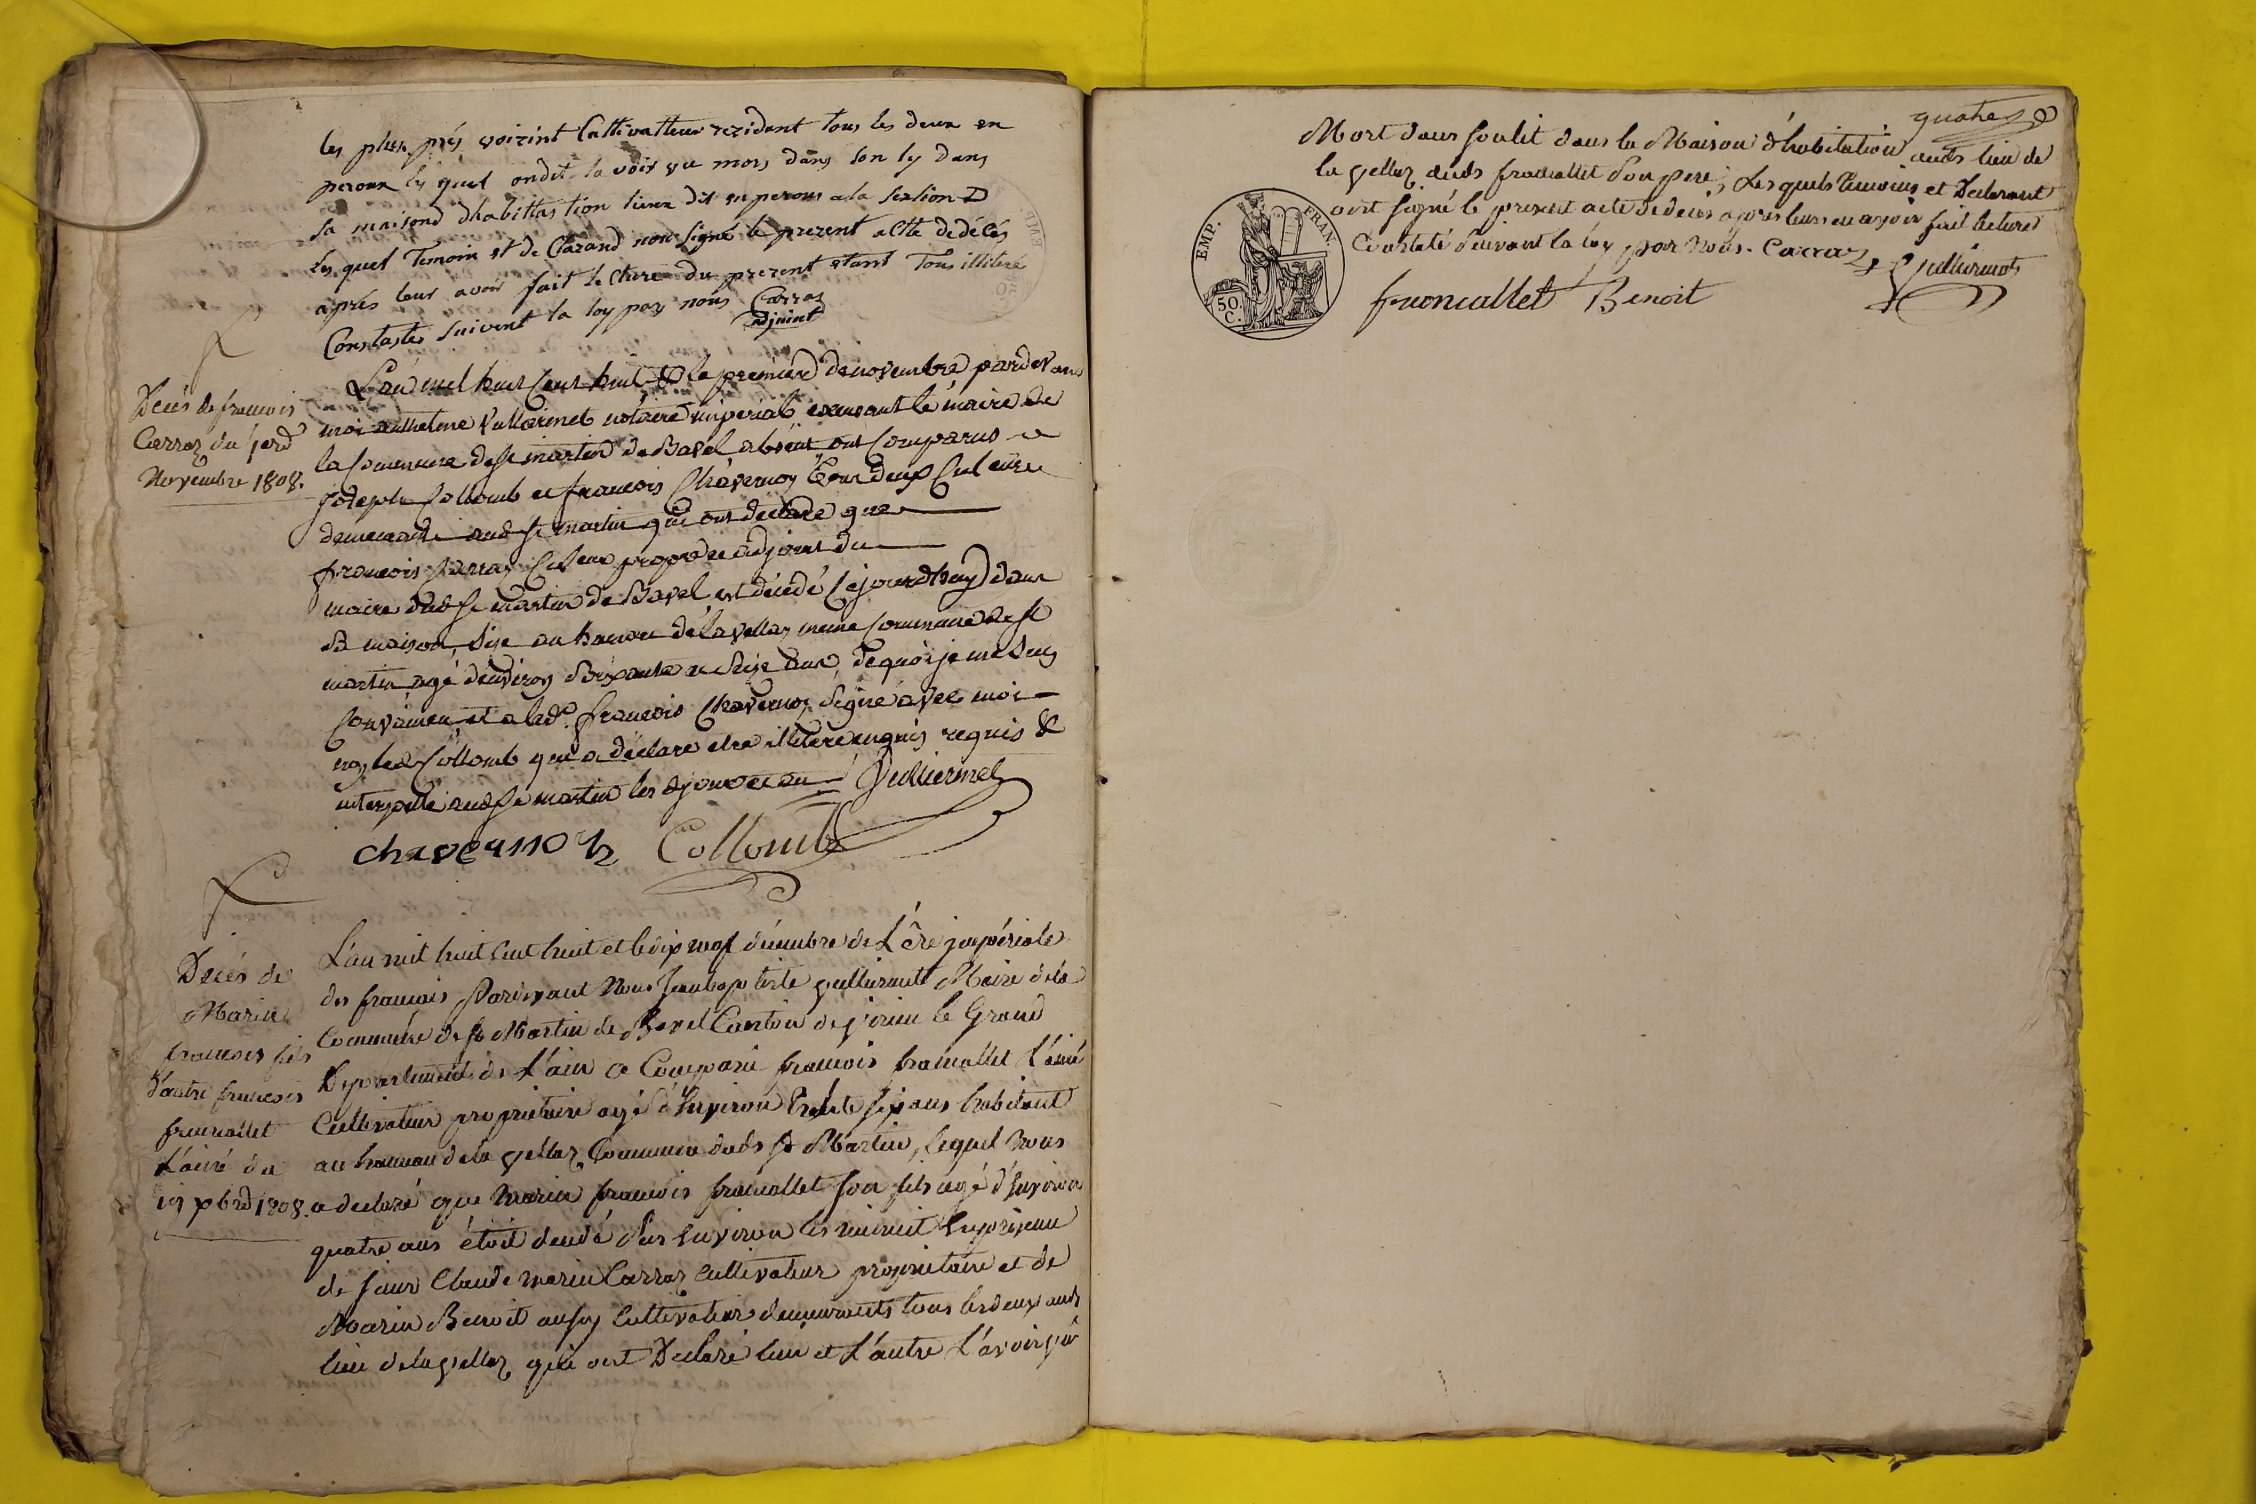 les plus prés voizint Cattivatteur rezidant tous les deux en
peroux les quel ondit la voir vu mors dans son ly dans
sa maisond dhabittastion lieux dit en peroux a la sextion D
Les quel Temoin et de Clarand non signé le prezent acte dedécés
aprés leur avoir fait lecture du prezent etant Tous illiteré
Constastés suivent la loy par nous Carraz
adjoint
Décès de francois
Carraz du 1erd
Novembre 1808.
L'an mil huit cent huit & le premierd denovembre pardevans
moi anthelme Vulliermet notaire imperial exersant le maire de
la Commune de st martin de Bavel absent ont Comparus
Joseph Collomb et francois Chavernoz tous deux Culteur
demeurant aud st martin qui ont declaré que
francois Carraz Culteur propre et adjoint du
maire dud st martin de Bavel est décédé Cejourdhuy dans
sa maison sise au hameau de la vellaz meme Commune de st
martin agé d'environ soixante et seize ans, dequoi je me suis
Convaincu et a led. francois Chavernoz signé avec moi
non led Collomb qui a déclaré etre illiteré enquis requis &
interpellé aud st martin les djour et an Vulliermet
chavernoz Collomb
Decés de
Marin
francois fils
d'autre francois
francallet
L'ainé du
19 xbred 1808.
L'an mil huit cent huit et le dix neuf décembre de L'ère jmpériale
des francais Pardevant Nous Jeanbaptiste vulliermet Maire dela
Commune de st Martin de Bavel Canton de virieu le Grand
Departement de L'ain a Comparu francois francallet L'ainé
Cultivateur propriétaire agé d'Environ Trente six ans habitant
au hameau dela vellaz Commune dudt st Martin, lequel nous
a declaré que Marin francois francallet son fils agé d'Environ
quatre ans étoit decedé sur Environ les minuit En présence
de sieur Claude marin Carraz Cultivateur propriétaire et de
Marin Benoit aussy Cultivateur demeurants tous les deux audt
lieu dela vellaz qui ont Declaré l'un et L'autre L'avoir vû
quatre
Mort dans son lit dans la Maison d'habitation audt lieu de
la vellaz dudt francallet son pere; Les quels temoins et Declarant
ont signé le present acte de decés apres leurs en avoir fait lecture
Constaté suivant la loy par nous. Carraz Vulliermet
francallet Benoit
EMP. FRAN.
50
C.